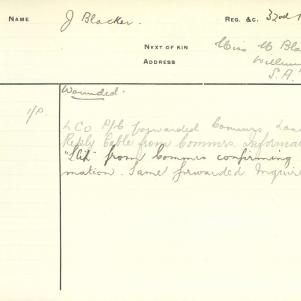 NAME J Blacker. REG. &C. 32nd
NEXT OF KIN Miss M Bla
ADDRESS Willun
S.A.
Wounded.
LCo P/C forwarded Commrs Lon
Reply Cable from Commrs. informa
"Slit" from Commrs confirming
mation. Same forwarded Inquire